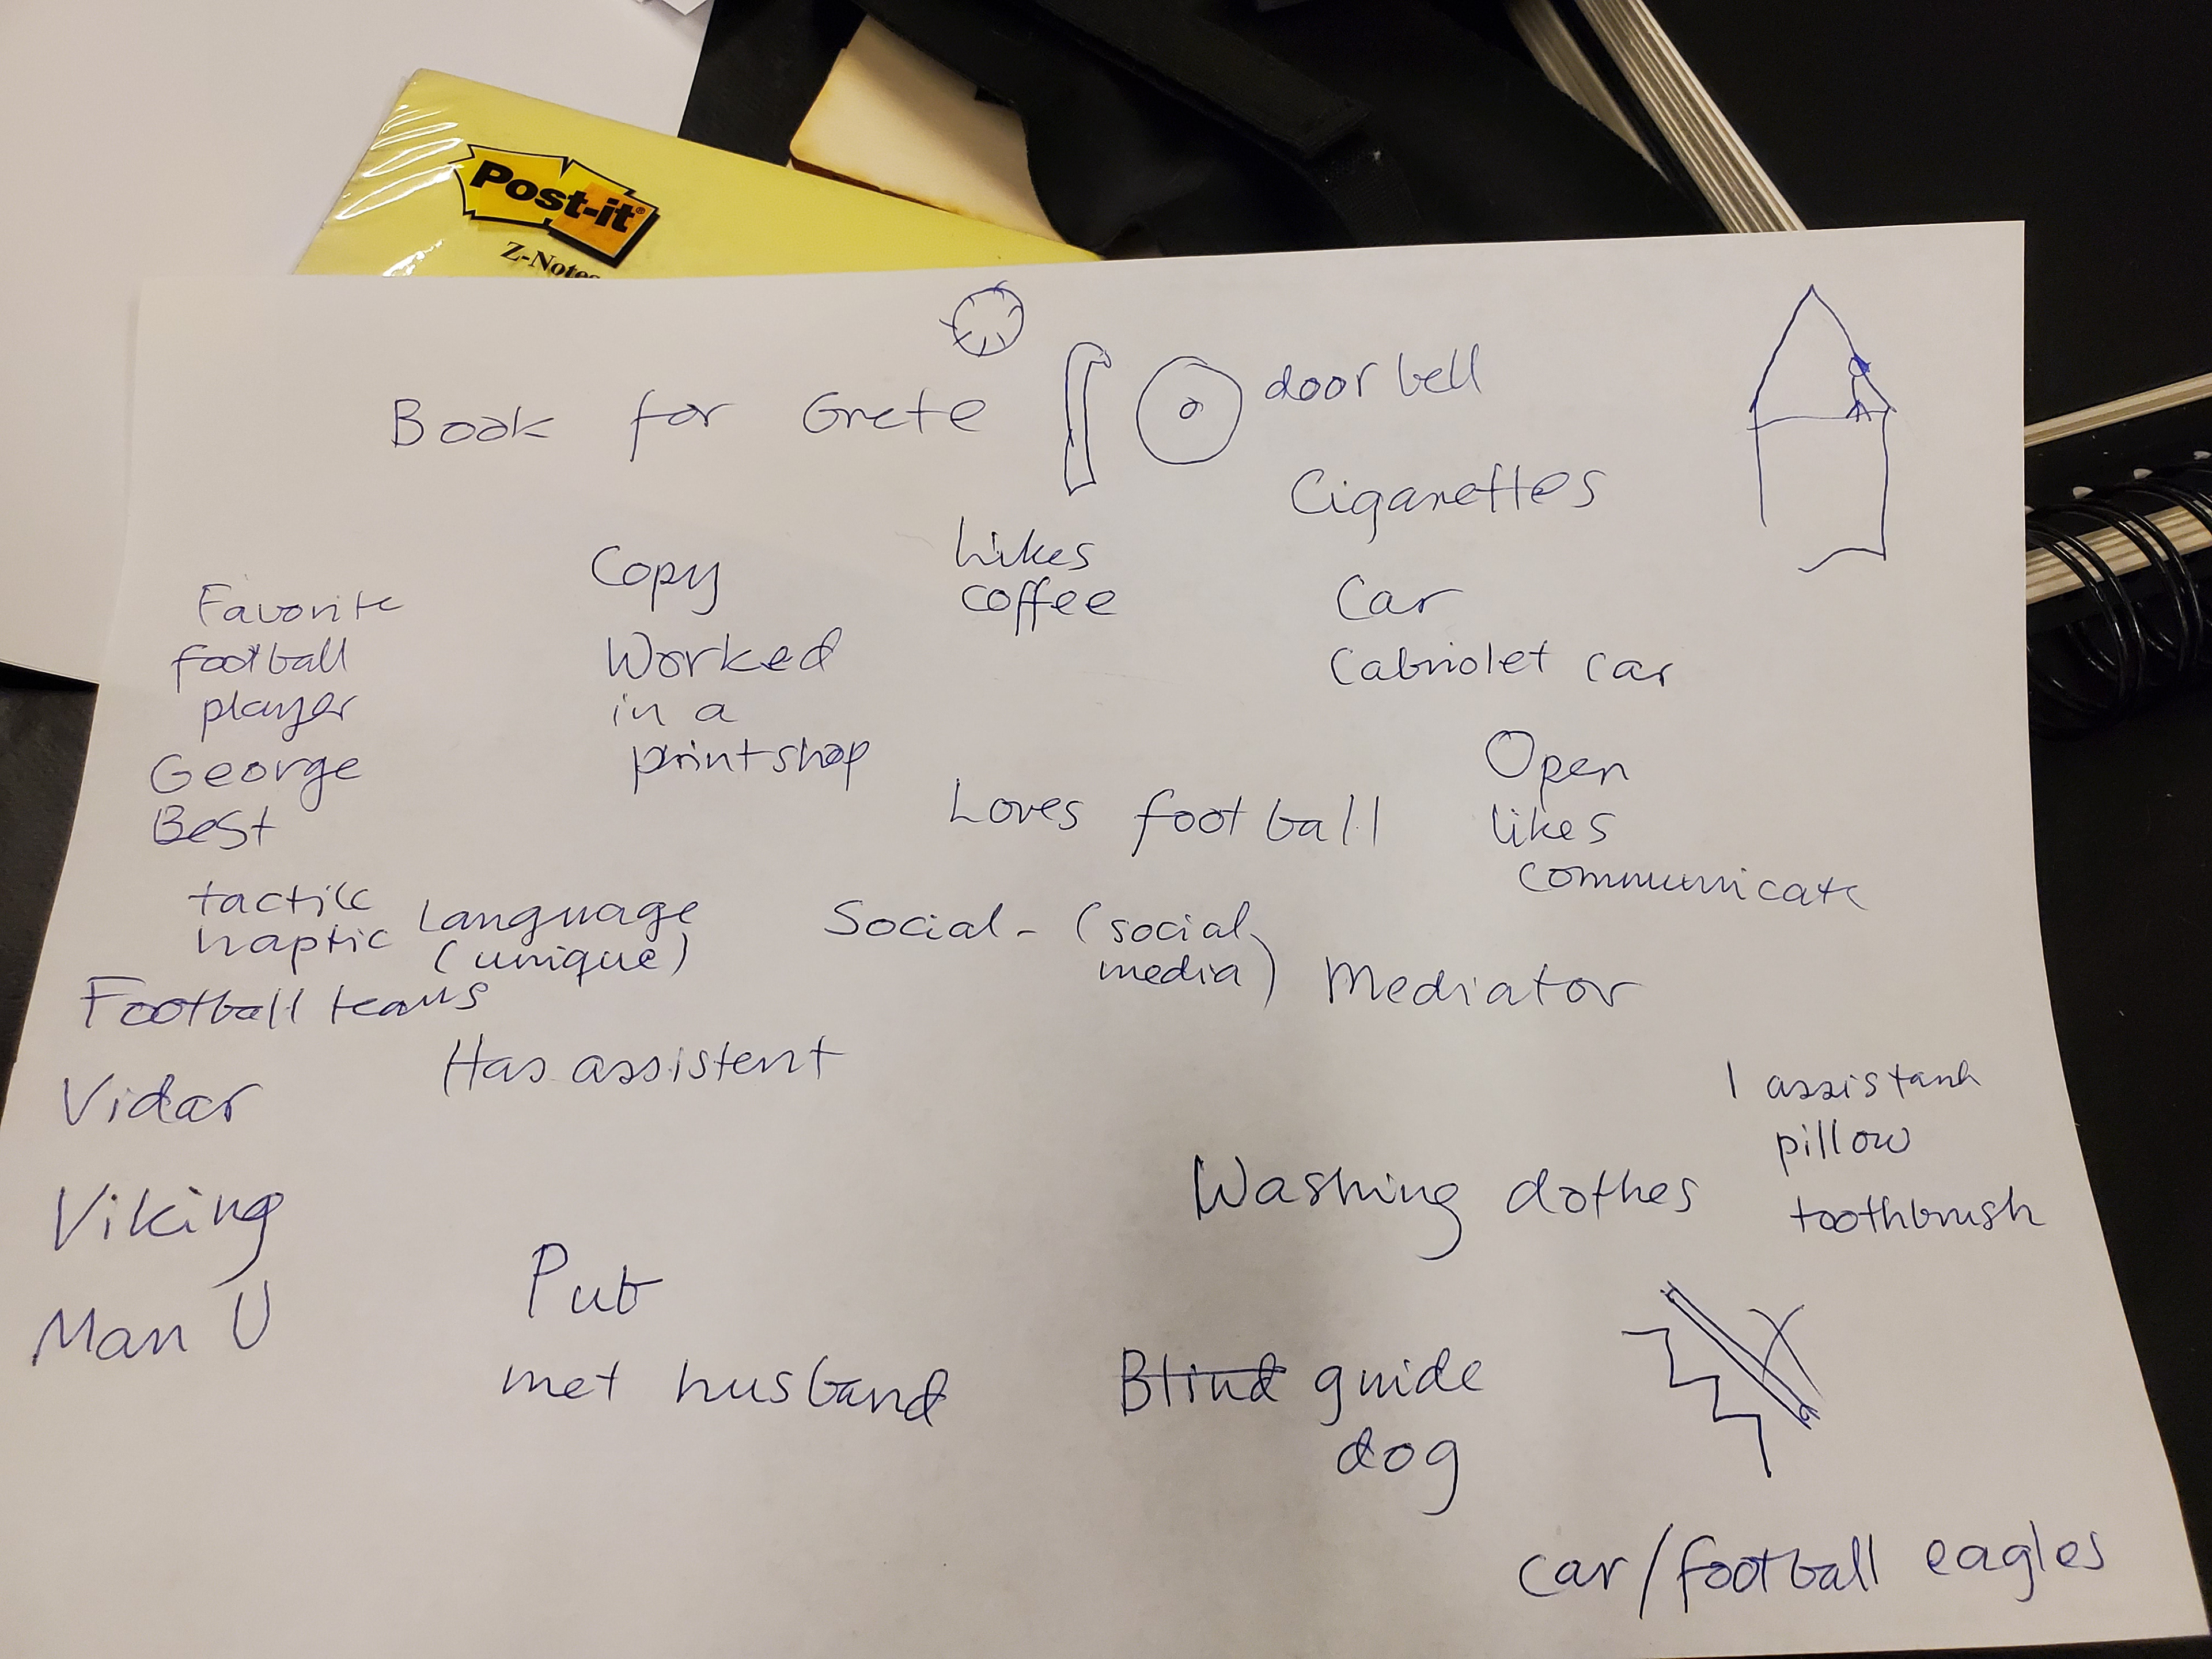 Post-it®
Z-Notes
Book for Grete
door bell
Cigarettes
Likes
coffee
Copy
Worked
in a
printshop
Favorite
football
player
George
Best
Car
Cabriolet car
Open
likes
communicate
Loves football
tactile
haptic
Language
(unique)
Social - (social
media)
Mediator
Football teams
Vidar
Viking
Man U
Has assistent
1 assistant
pillow
toothbrush
Washing clothes
Pub
met husband
Blind guide
dog
car/football eagles